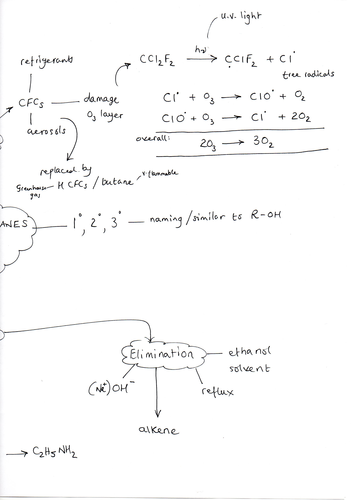 u.v. light
refrigerants
CCl₂F₂ hν → ĊClF₂ + Cl•
free radicals
CFCs — damage O₃ layer
Cl• + O₃ → ClO• + O₂
aerosols
ClO• + O₃ → Cl• + 2O₂
overall: 2O₃ → 3O₂
replaced by
greenhouse gas — HCFCs / butane — v. flammable
ANES — 1°, 2°, 3° — naming/similar to R-OH
Elimination — ethanol solvent
(Na⁺)OH⁻
reflux
alkene
→ C₂H₅NH₂